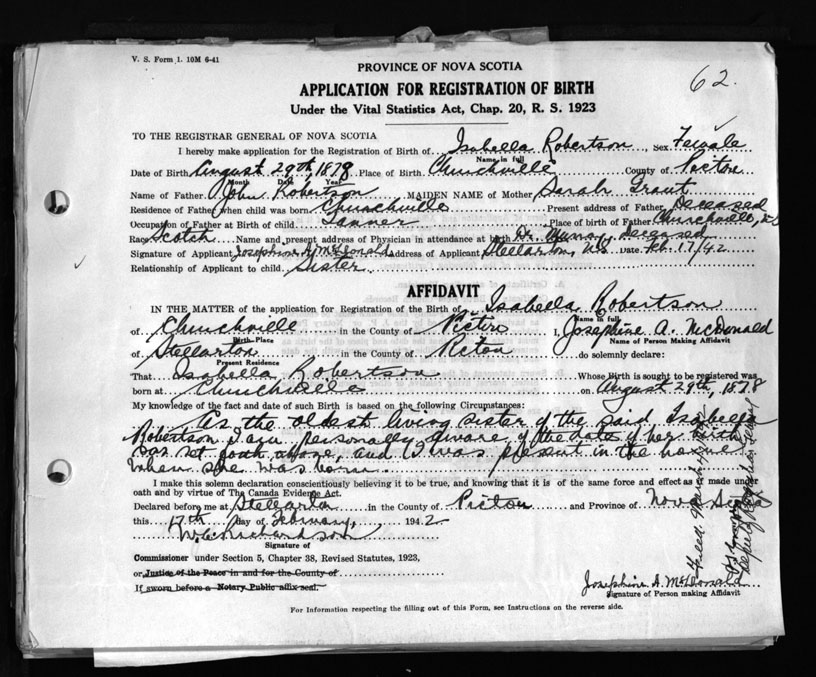 V. S. Form 1. 10M 6-41
PROVINCE OF NOVA SCOTIA
62.
APPLICATION FOR REGISTRATION OF BIRTH
Under the Vital Statistics Act, Chap. 20, R. S. 1923
TO THE REGISTRAR GENERAL OF NOVA SCOTIA
I hereby make application for the Registration of Birth of Isabella Robertson, Sex Female
Name in full
Date of Birth August 29th, 1878 Place of Birth Churchville County of Pictou
Month Date Year
Name of Father John Robertson MAIDEN NAME of Mother Sarah Grant
Residence of Father when child was born Churchville Present address of Father Deceased
Occupation of Father at Birth of child Tanner Place of birth of Father Churchville, N.S.
Race Scotch Name and present address of Physician in attendance at birth Dr. Murray, Deceased
Signature of Applicant Josephine A. McDonald Address of Applicant Stellarton, N.S. Date Feb. 17/42
Relationship of Applicant to child Sister
AFFIDAVIT
IN THE MATTER of the application for Registration of the Birth of Isabella Robertson
Name in full
of Churchville in the County of Pictou I, Josephine A. McDonald
Birth-Place Name of Person Making Affidavit
of Stellarton in the County of Pictou do solemnly declare:
Present Residence
That Isabella Robertson Whose Birth is sought to be registered was
born at Churchville on August 29th, 1878
My knowledge of the fact and date of such Birth is based on the following Circumstances:
As the oldest living sister of the said Isabella
Robertson I am personally aware of the date of her birth
as set forth above, and I was present in the house
when she was born.
I make this solemn declaration conscientiously believing it to be true, and knowing that it is of the same force and effect as if made under
oath and by virtue of The Canada Evidence Act.
Declared before me at Stellarton in the County of Pictou and Province of Nova Scotia
this 17th day of February, 1942
W. C. Richardson
Signature of
Commissioner under Section 5, Chapter 38, Revised Statutes, 1923,
or Justice of the Peace in and for the County of
If sworn before a Notary Public affix seal.
Josephine A. McDonald
Signature of Person making Affidavit
For Information respecting the filling out of this Form, see Instructions on the reverse side.
Filed
Deputy Registrar General